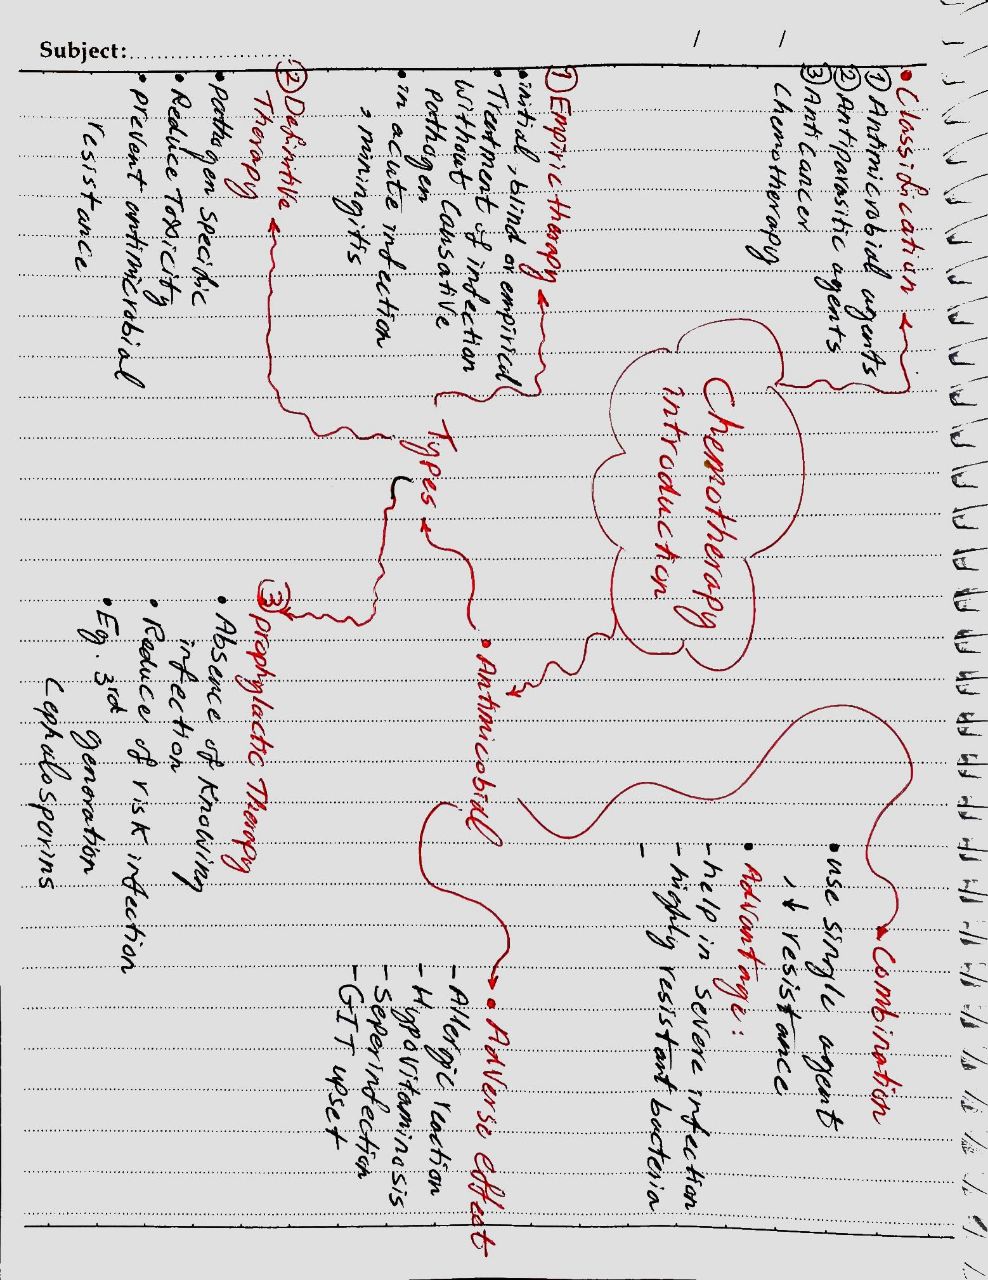 Subject:
Chemotherapy
introduction
• Classification
① Antimicrobial agents
② Antiparasitic agents
③ Anticancer
chemotherapy
• Antimicobial
Types
① Empiric therapy
• initial, blind or empirical
• Treentment of infection
without Causative
pathogen
• in acute infection
, miningitis
② Definitive
Therapy
• pathogen specific
• Reduce Toxicity
• prevent antimicrobial
resistance
③ prophylactic Therapy
• Absence of Knowing
infection
• Reduce of risk infection
• Eg. 3rd generation
Cephalosporins
Combination
• use single agent
, ↓ resistance
• Advantage:
- help in severe infection
- highly resistant bacteria
-
• Adverse effect
- Allergic reaction
- Hypovitaminosis
- Seperinfection
- GIT upset